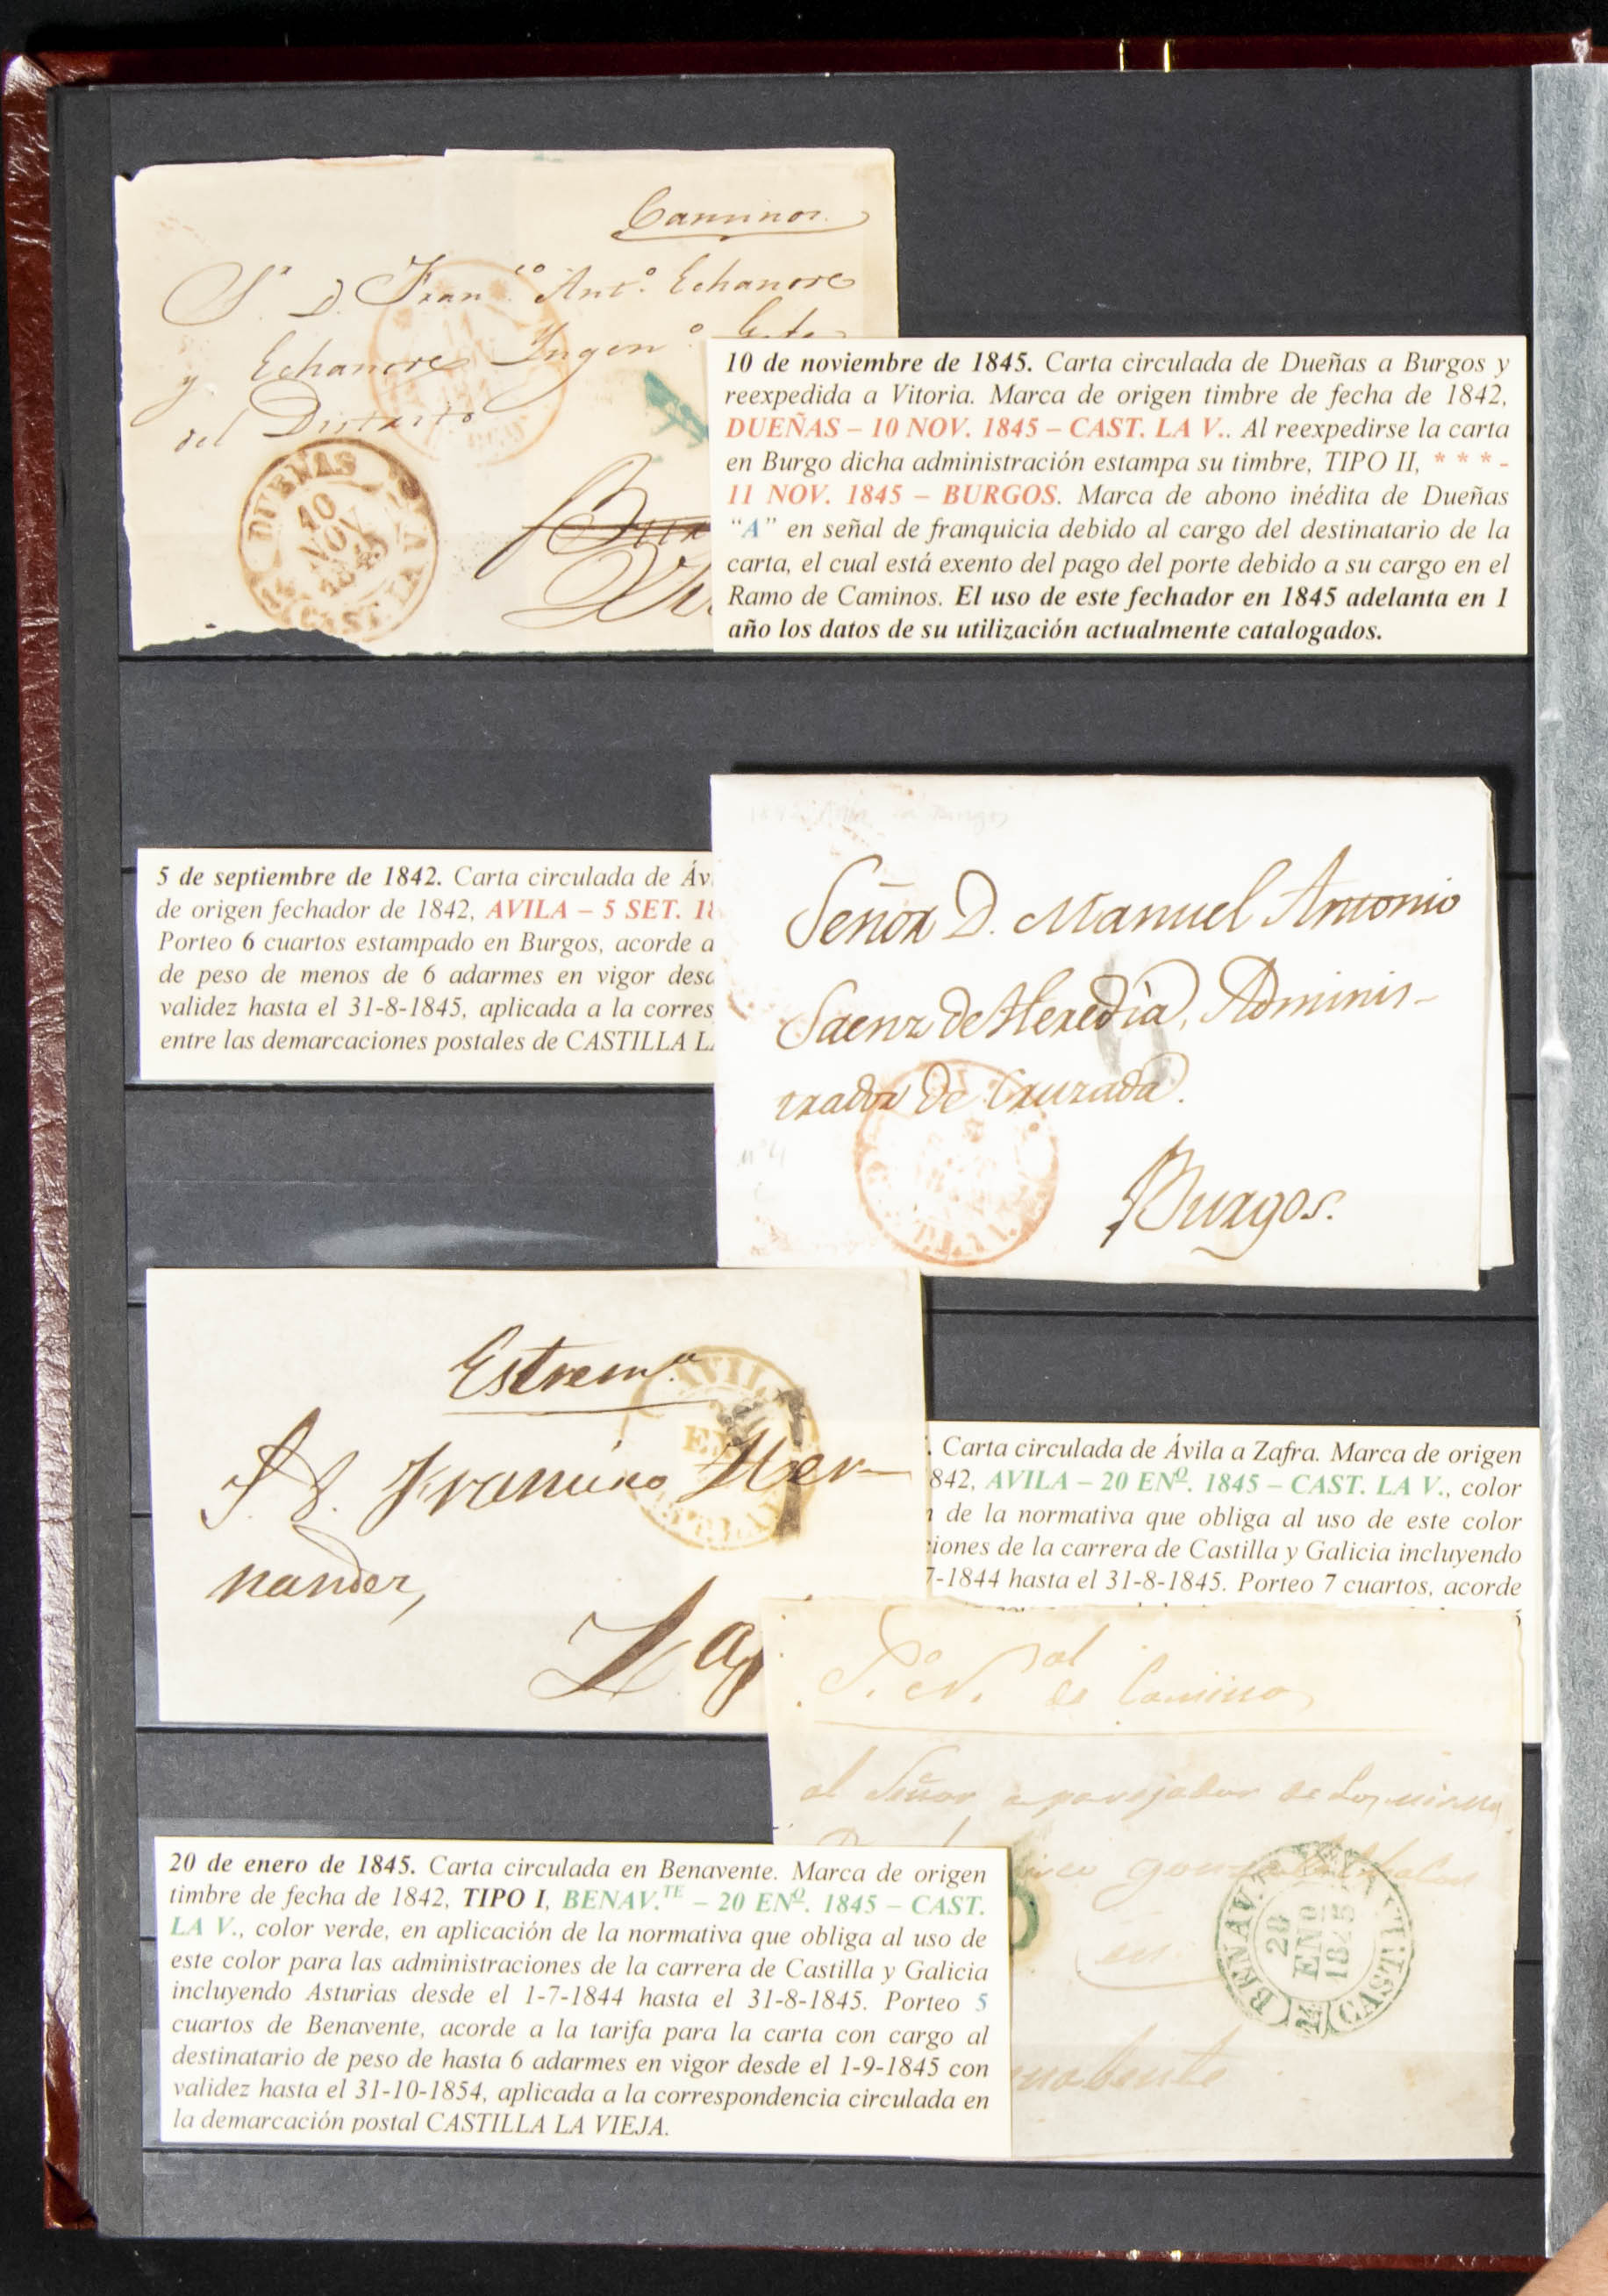 Caminos.
Sr. D. Franco. Anto. Echanove
y Echanove Ingeno.
del Distrito
DUEÑAS
10
NOV
1845
CAST. LA V.
10 de noviembre de 1845. Carta circulada de Dueñas a Burgos y
reexpedida a Vitoria. Marca de origen timbre de fecha de 1842,
DUEÑAS – 10 NOV. 1845 – CAST. LA V.. Al reexpedirse la carta
en Burgo dicha administración estampa su timbre, TIPO II, * * * -
11 NOV. 1845 – BURGOS. Marca de abono inédita de Dueñas
“A” en señal de franquicia debido al cargo del destinatario de la
carta, el cual está exento del pago del porte debido a su cargo en el
Ramo de Caminos. El uso de este fechador en 1845 adelanta en 1
año los datos de su utilización actualmente catalogados.
5 de septiembre de 1842. Carta circulada de Áv
de origen fechador de 1842, AVILA – 5 SET. 18
Porteo 6 cuartos estampado en Burgos, acorde a
de peso de menos de 6 adarmes en vigor desd
validez hasta el 31-8-1845, aplicada a la corres
entre las demarcaciones postales de CASTILLA LA
Señor D. Manuel Antonio
Saenz de Heredia, Adminis-
trador de Cruzada.
Burgos.
Estrema.
S. D. Francisco Her-
nandez,
Zaf
. Carta circulada de Ávila a Zafra. Marca de origen
842, AVILA – 20 ENº. 1845 – CAST. LA V., color
n de la normativa que obliga al uso de este color
ciones de la carrera de Castilla y Galicia incluyendo
7-1844 hasta el 31-8-1845. Porteo 7 cuartos, acorde
al Señor aparejador de
BENAV.TE
20
ENº
1845
CAST. LA V.
20 de enero de 1845. Carta circulada en Benavente. Marca de origen
timbre de fecha de 1842, TIPO I, BENAV.TE – 20 ENº. 1845 – CAST.
LA V., color verde, en aplicación de la normativa que obliga al uso de
este color para las administraciones de la carrera de Castilla y Galicia
incluyendo Asturias desde el 1-7-1844 hasta el 31-8-1845. Porteo 5
cuartos de Benavente, acorde a la tarifa para la carta con cargo al
destinatario de peso de hasta 6 adarmes en vigor desde el 1-9-1845 con
validez hasta el 31-10-1854, aplicada a la correspondencia circulada en
la demarcación postal CASTILLA LA VIEJA.